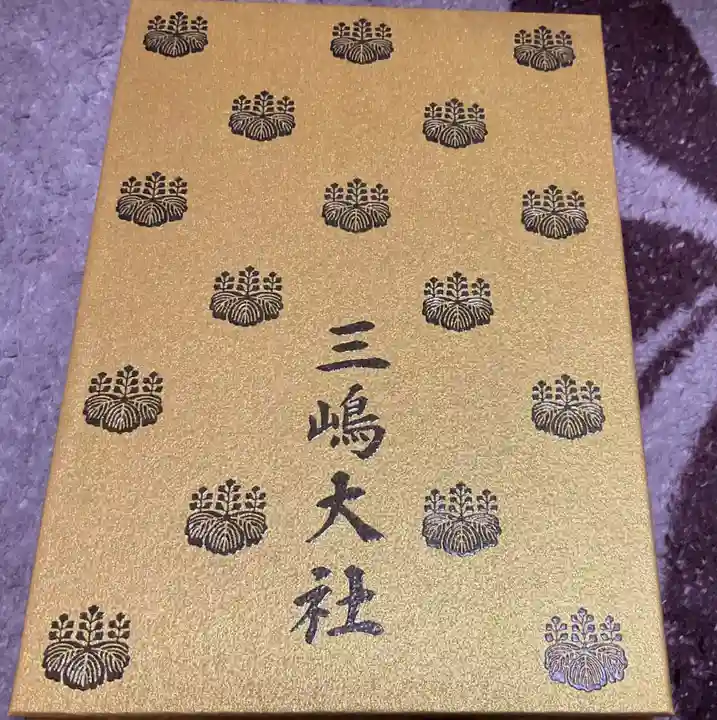 三嶋大社